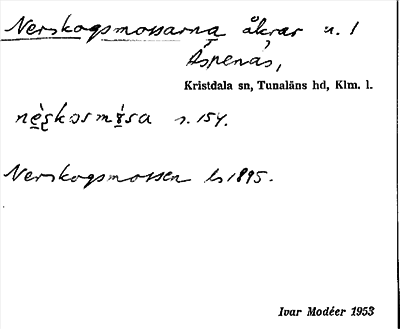 Nerskogsmossarna åkrar n. 1
Åspenäs,
Kristdala sn, Tunaläns hd, Klm. l.
s. 154.
Nerskogsmossen ls 1895.
Ivar Modéer 1953